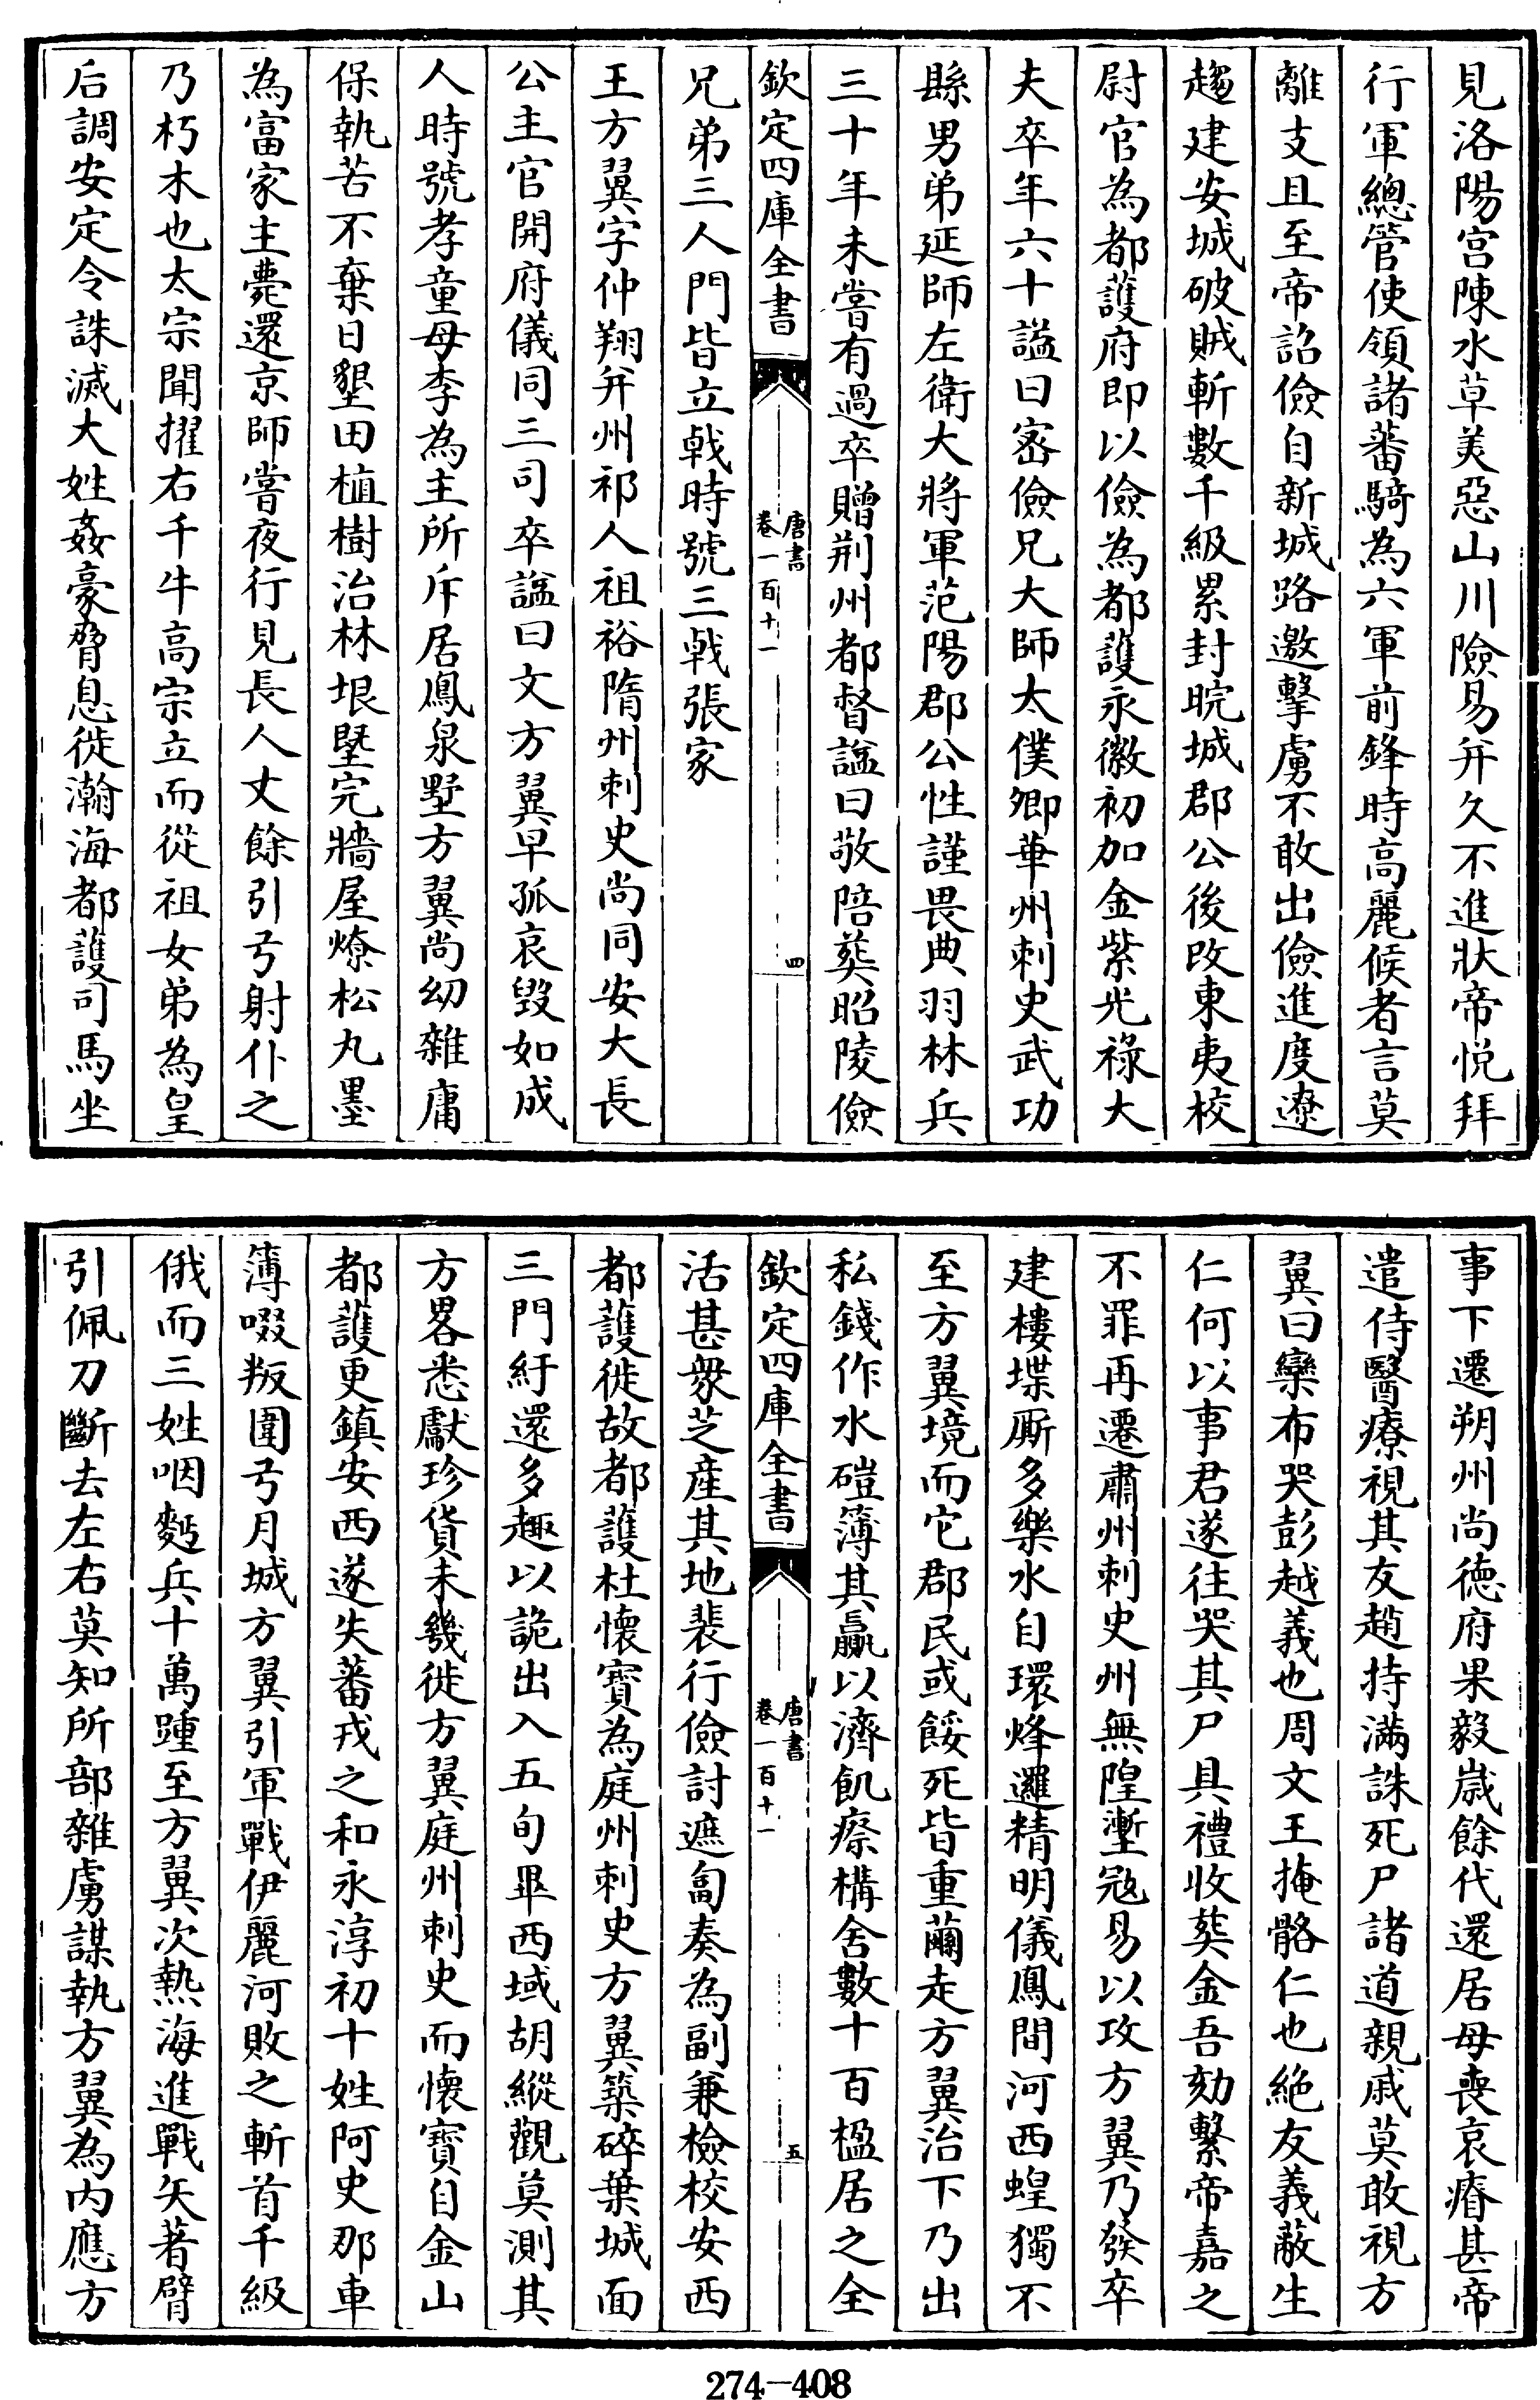 見洛陽宮陳水草美惡山川險易并久不進狀帝悅拜
行軍總管使領諸蕃騎為六軍前鋒時高麗候者言莫
離支且至帝詔儉自新城路邀擊虜不敢出儉進度遼
趨建安城破賊斬數千級累封皖城郡公後改東夷校
尉官為都護府即以儉為都護永徽初加金紫光祿大
夫卒年六十諡曰宻儉兄大師太僕卿華州刺史武功
縣男弟延師左衛大將軍范陽郡公性謹畏典羽林兵
三十年未嘗有過卒贈荆州都督諡曰敬陪葬昭陵儉
欽定四庫全書 唐書 卷一百十一 四
兄弟三人門皆立㦸時號三㦸張家
王方翼字仲翔并州祁人祖裕隋州刺史尚同安大長
公主官開府儀同三司卒諡曰文方翼早孤哀毁如成
人時號孝童母李為主所斥居鳳泉墅方翼尚幼雜庸
保執苦不棄日墾田植樹治林垠墍完牆屋燎松丸墨
為富家主薨還京師嘗夜行見長人丈餘引弓射仆之
乃朽木也太宗聞擢右千牛高宗立而從祖女弟為皇
后調安定令誅滅大姓姦豪脅息徙瀚海都護司馬坐
事下遷朔州尚德府果毅嵗餘代還居母喪哀瘠甚帝
遣侍醫療視其友趙持滿誅死尸諸道親戚莫敢視方
翼曰欒布哭彭越義也周文王掩骼仁也絕友義蔽主
仁何以事君遂往哭其尸具禮收葬金吾劾繫帝嘉之
不罪再遷肅州刺史州無隍塹寇易以攻方翼乃發卒
建樓堞厮多樂水自環烽邏精明儀鳳間河西蝗獨不
至方翼境而它郡民或餒死皆重繭走方翼治下乃出
私錢作水磑簿其贏以濟飢瘵構舍數十百楹居之全
欽定四庫全書 唐書 卷一百十一 五
活甚衆芝産其地裴行儉討遮匐奏為副兼檢校安西
都護徙故都護杜懷寳為庭州刺史方翼築碎葉城面
三門紆還多趣以詭出入五旬畢西域胡縱觀莫測其
方畧悉獻珍貨未幾徙方翼庭州刺史而懷寳自金山
都護更鎮安西遂失蕃戎之和永淳初十姓阿史那車
簿啜叛圍弓月城方翼引軍戰伊麗河敗之斬首千級
俄而三姓咽麪兵十萬踵至方翼次熱海進戰矢著臂
引佩刀斷去左右莫知所部雜虜謀執方翼為内應方
274-408